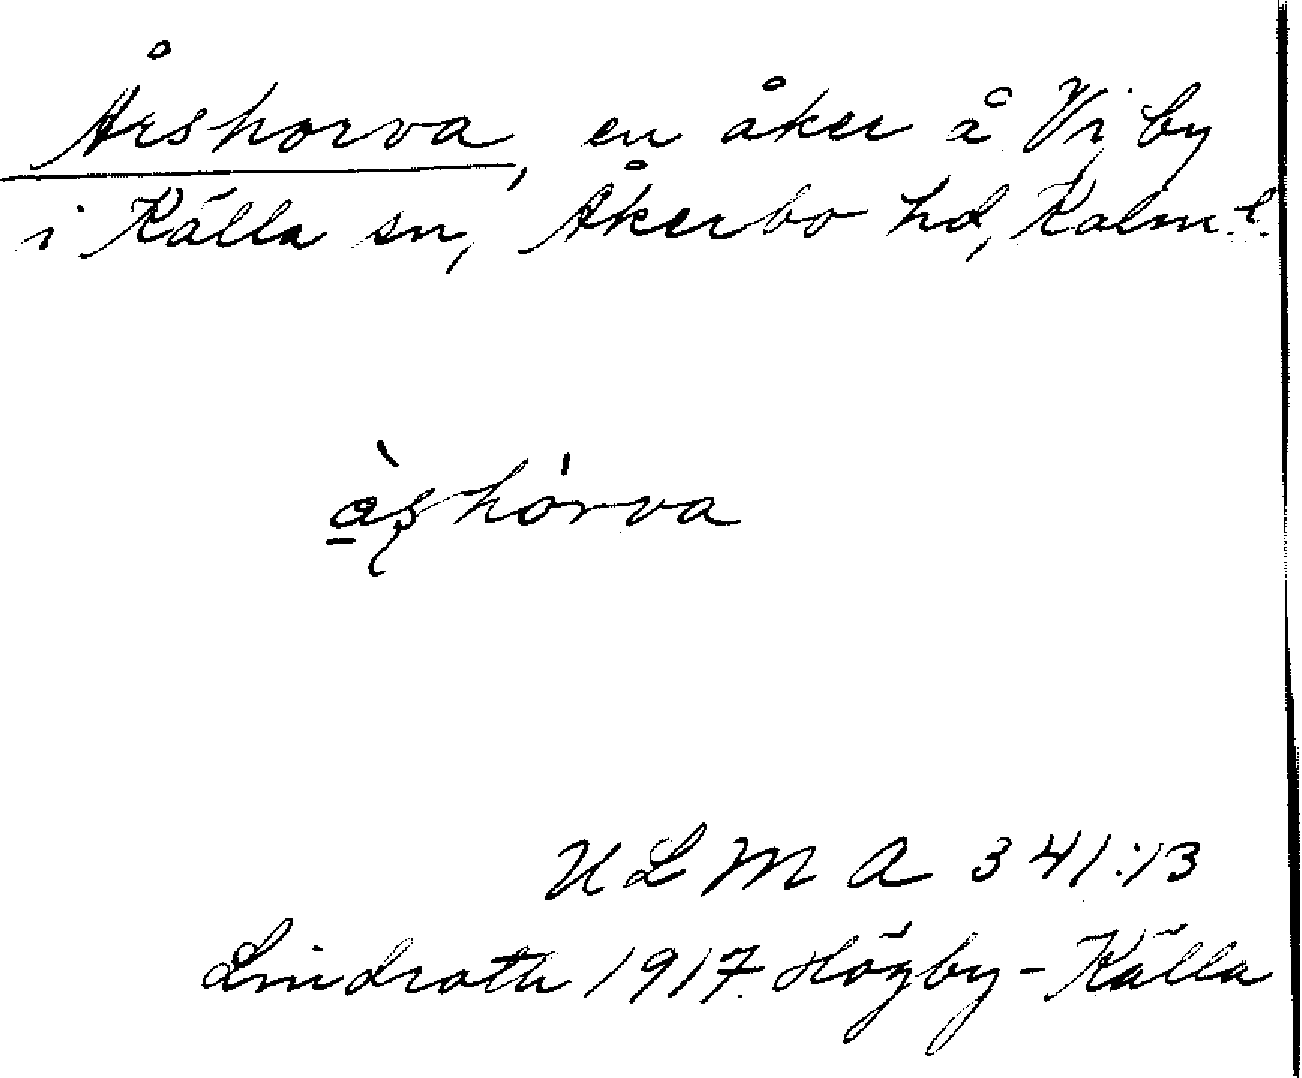 Årshorva, en åker å Vi by
i Källa sn, Åkerbo hd, Kalm. l.
à̲ʂhȯrva
ULMA 341:13
Lindroth 1917. Högby-Källa